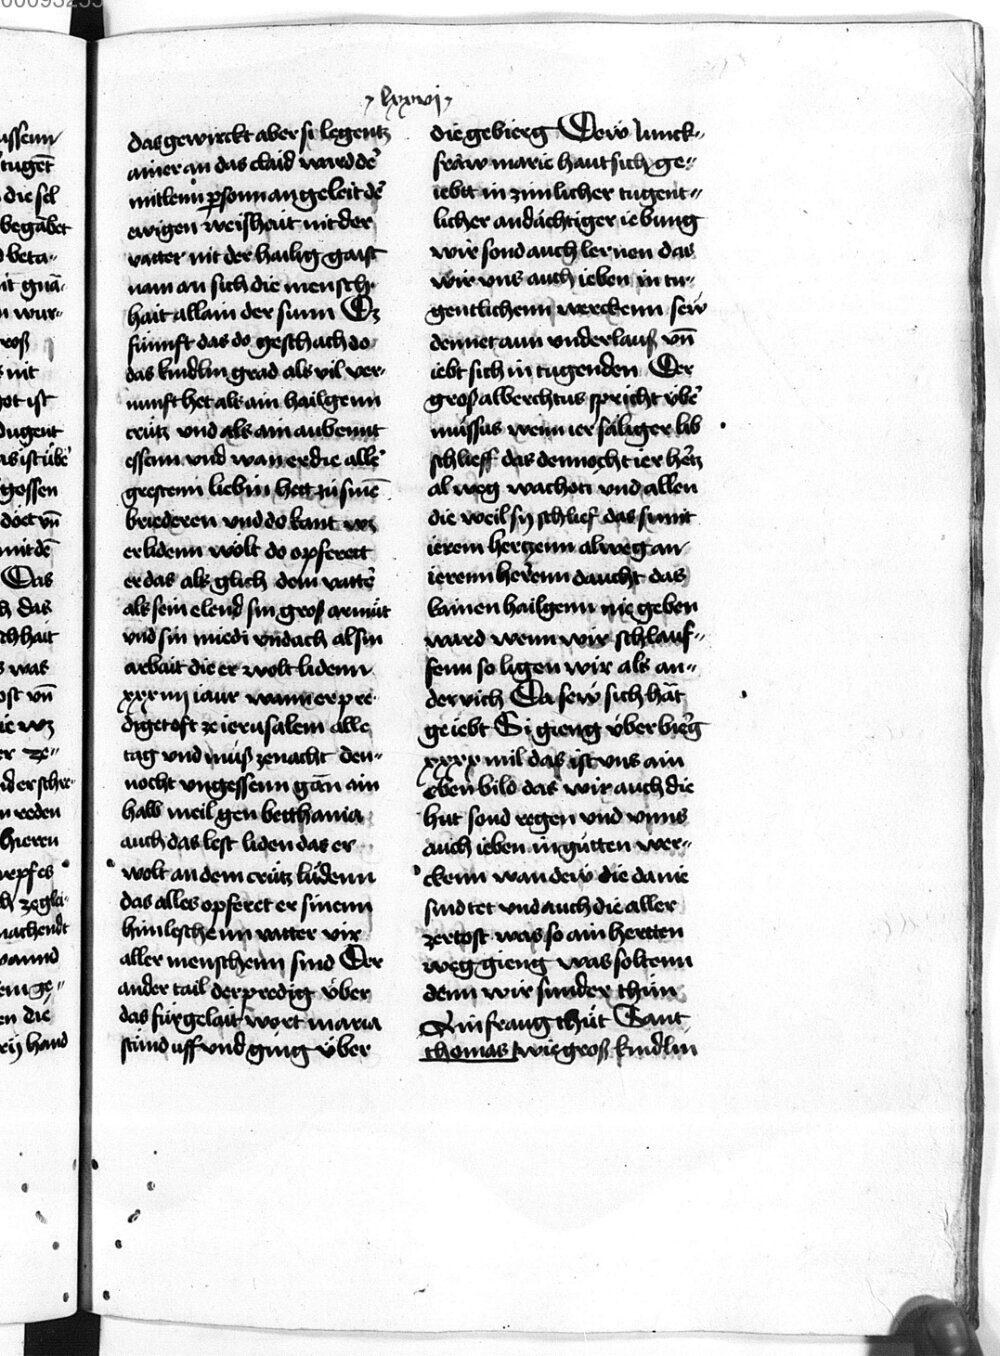 lxxvi
das gewirckt aber si legentz
ainer an das claid ward dē
mitlenn psonn an geleit dē
ewigen weishait nit der
vatter nit der hailig gaist
nam an sich die mensch-
hait allain der sunn Ez
fúnnft das do geschach do
das kindlin grad als vil ver-
nunft het als ain hailgenn
crútz vnd als ain aubennt
essenn vnd wan er die allē
grestenn liebin hett zú sinē
briederen vnd do kant wz
er lidenn wolt do opferett
er das als glich dem vattē
als sein elend sin gros armůt
vnd sin miedi vnd ach al sin
arbait die er wolt lidenn
xxxiiij iaur wann er pre-
digetoft ze ierusalem alle
tag vnd můß ze nacht den-
nocht vngessenn gān ain
halb meil gen betthania
auch das lest liden das er
wolt an dem crútz lidenn
das alles opferet er sinenn
himleschenn vatter vir
aller menschenn sind Der
ander tail der predig über
das fúrgelait wort maria
stůnd uff vnd ging über
die gebierg Dew Junck-
fraw marie haut sich ge-
iebtt in zimlicher tugent-
licher andáchtiger iebung
wir sond auch lernen das
wir vns auch ieben in tu-
gentlichenn werckenn sew
dennet aun vnderlauß vn̄
iebt sich in tugenden Der
groß alberchtus spricht übē
missus wenn ier säliger lib
schlieff das dennocht ier hertz
al weg wachott vnd allen
die weil sy schlief das sunnt
ierem hertzenn alweg an
ierenn herrenn daucht das
kainen hailgenn nie geben
ward wenn wir schlauf-
fenn so ligen wir als an-
der vich Da sew sich hāt
geiebt Si gieng über bierg
xxxx mil das ist vns ain
eben bild das wir auch die
hut sond regen vnd vnns
auch ieben in gútten wer-
ckenn wan dew die da nie
sind tet vnd auch die aller
zertost was so ain hertten
weg gieng was soltenn
denn wir sunder thůn
Ain fraug thůt Sant
thomas wie groß kindlin